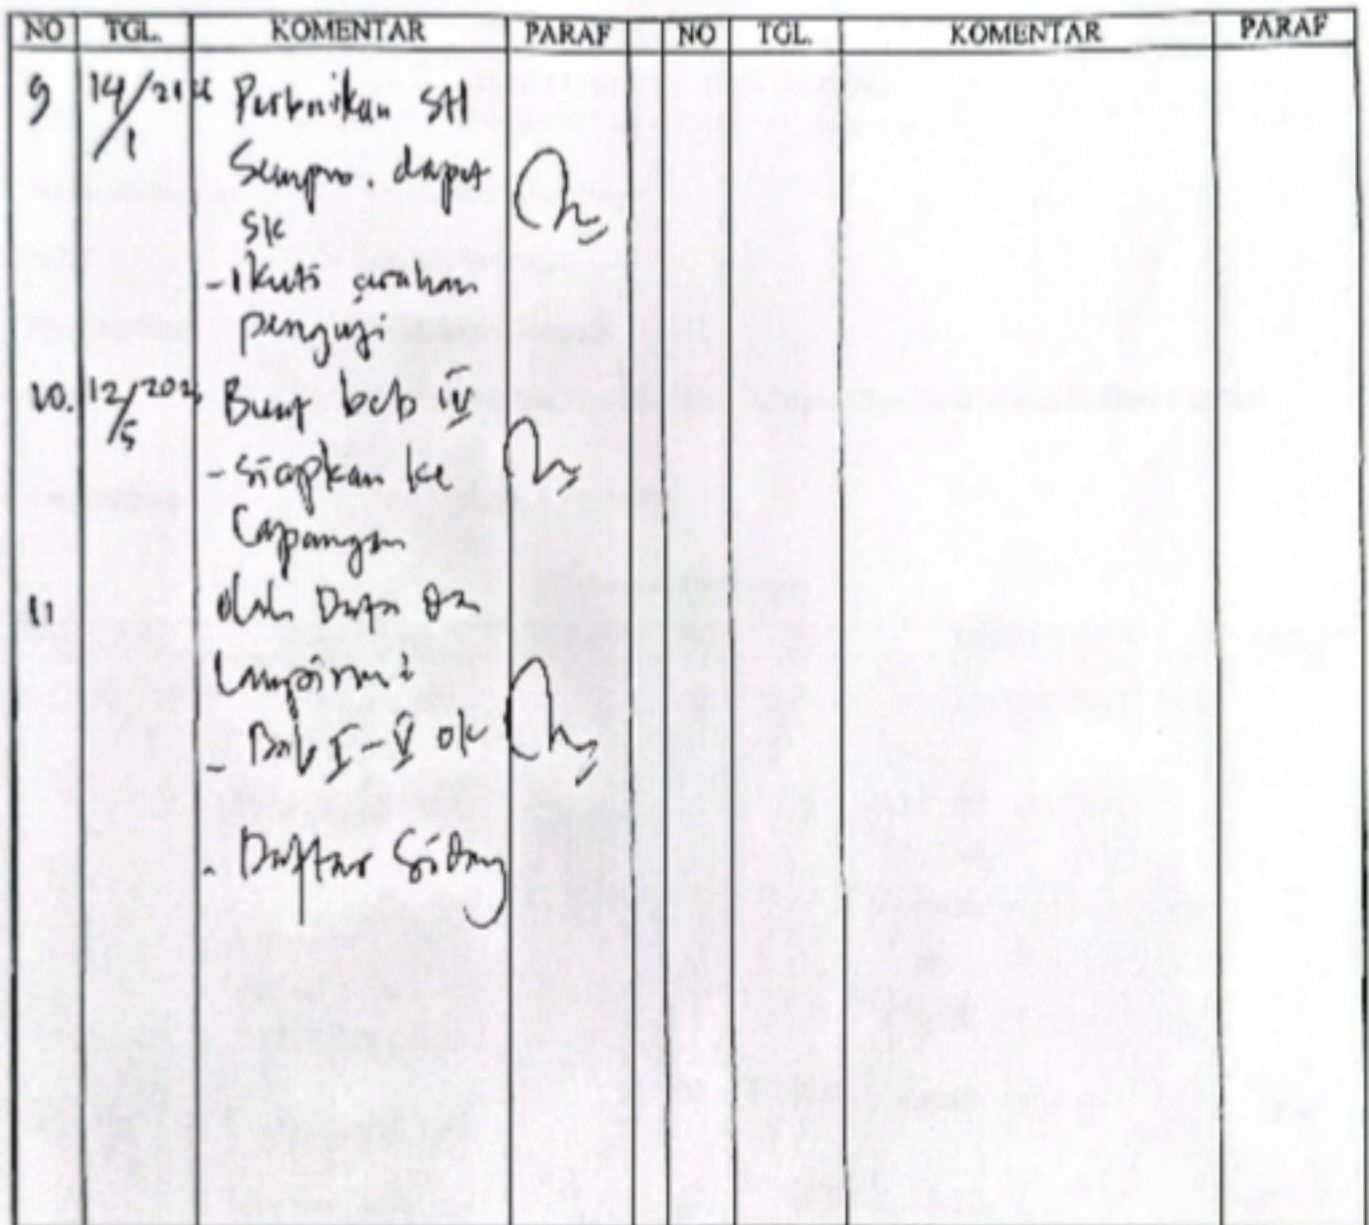 NO TGL. KOMENTAR PARAF NO TGL. KOMENTAR PARAF
9 14/1 Perbaikan stl
Sempro. dapat
SK
- Ikuti arahan
penguji
10. 12/5 Buat bab IV
- siapkan ke
Lapangan
11 olah Data dan
Lampiran:
- Bab I-V ok
- Daftar Sidang